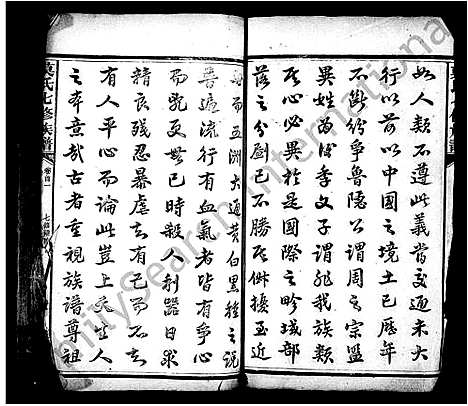 如人類不遵此義當交通未大
行以前以中國之境土已歷年
不斷紛爭魯隱公謂周之宗盟
異姓為後季文子謂非我族類
其心必異於是國際之畛域部
落之分劃已不勝其紛擾至近
而五洲大通黃白黑種之說
普遍流行有血氣者皆有爭心
而乾更無已時殺人利器日求
精良殘忍暴虐去有已而不去
有人平心而論此豈上天生人
之本意哉古者重視族譜尊祖
莫氏七修族譜
卷首
FamilySearch International